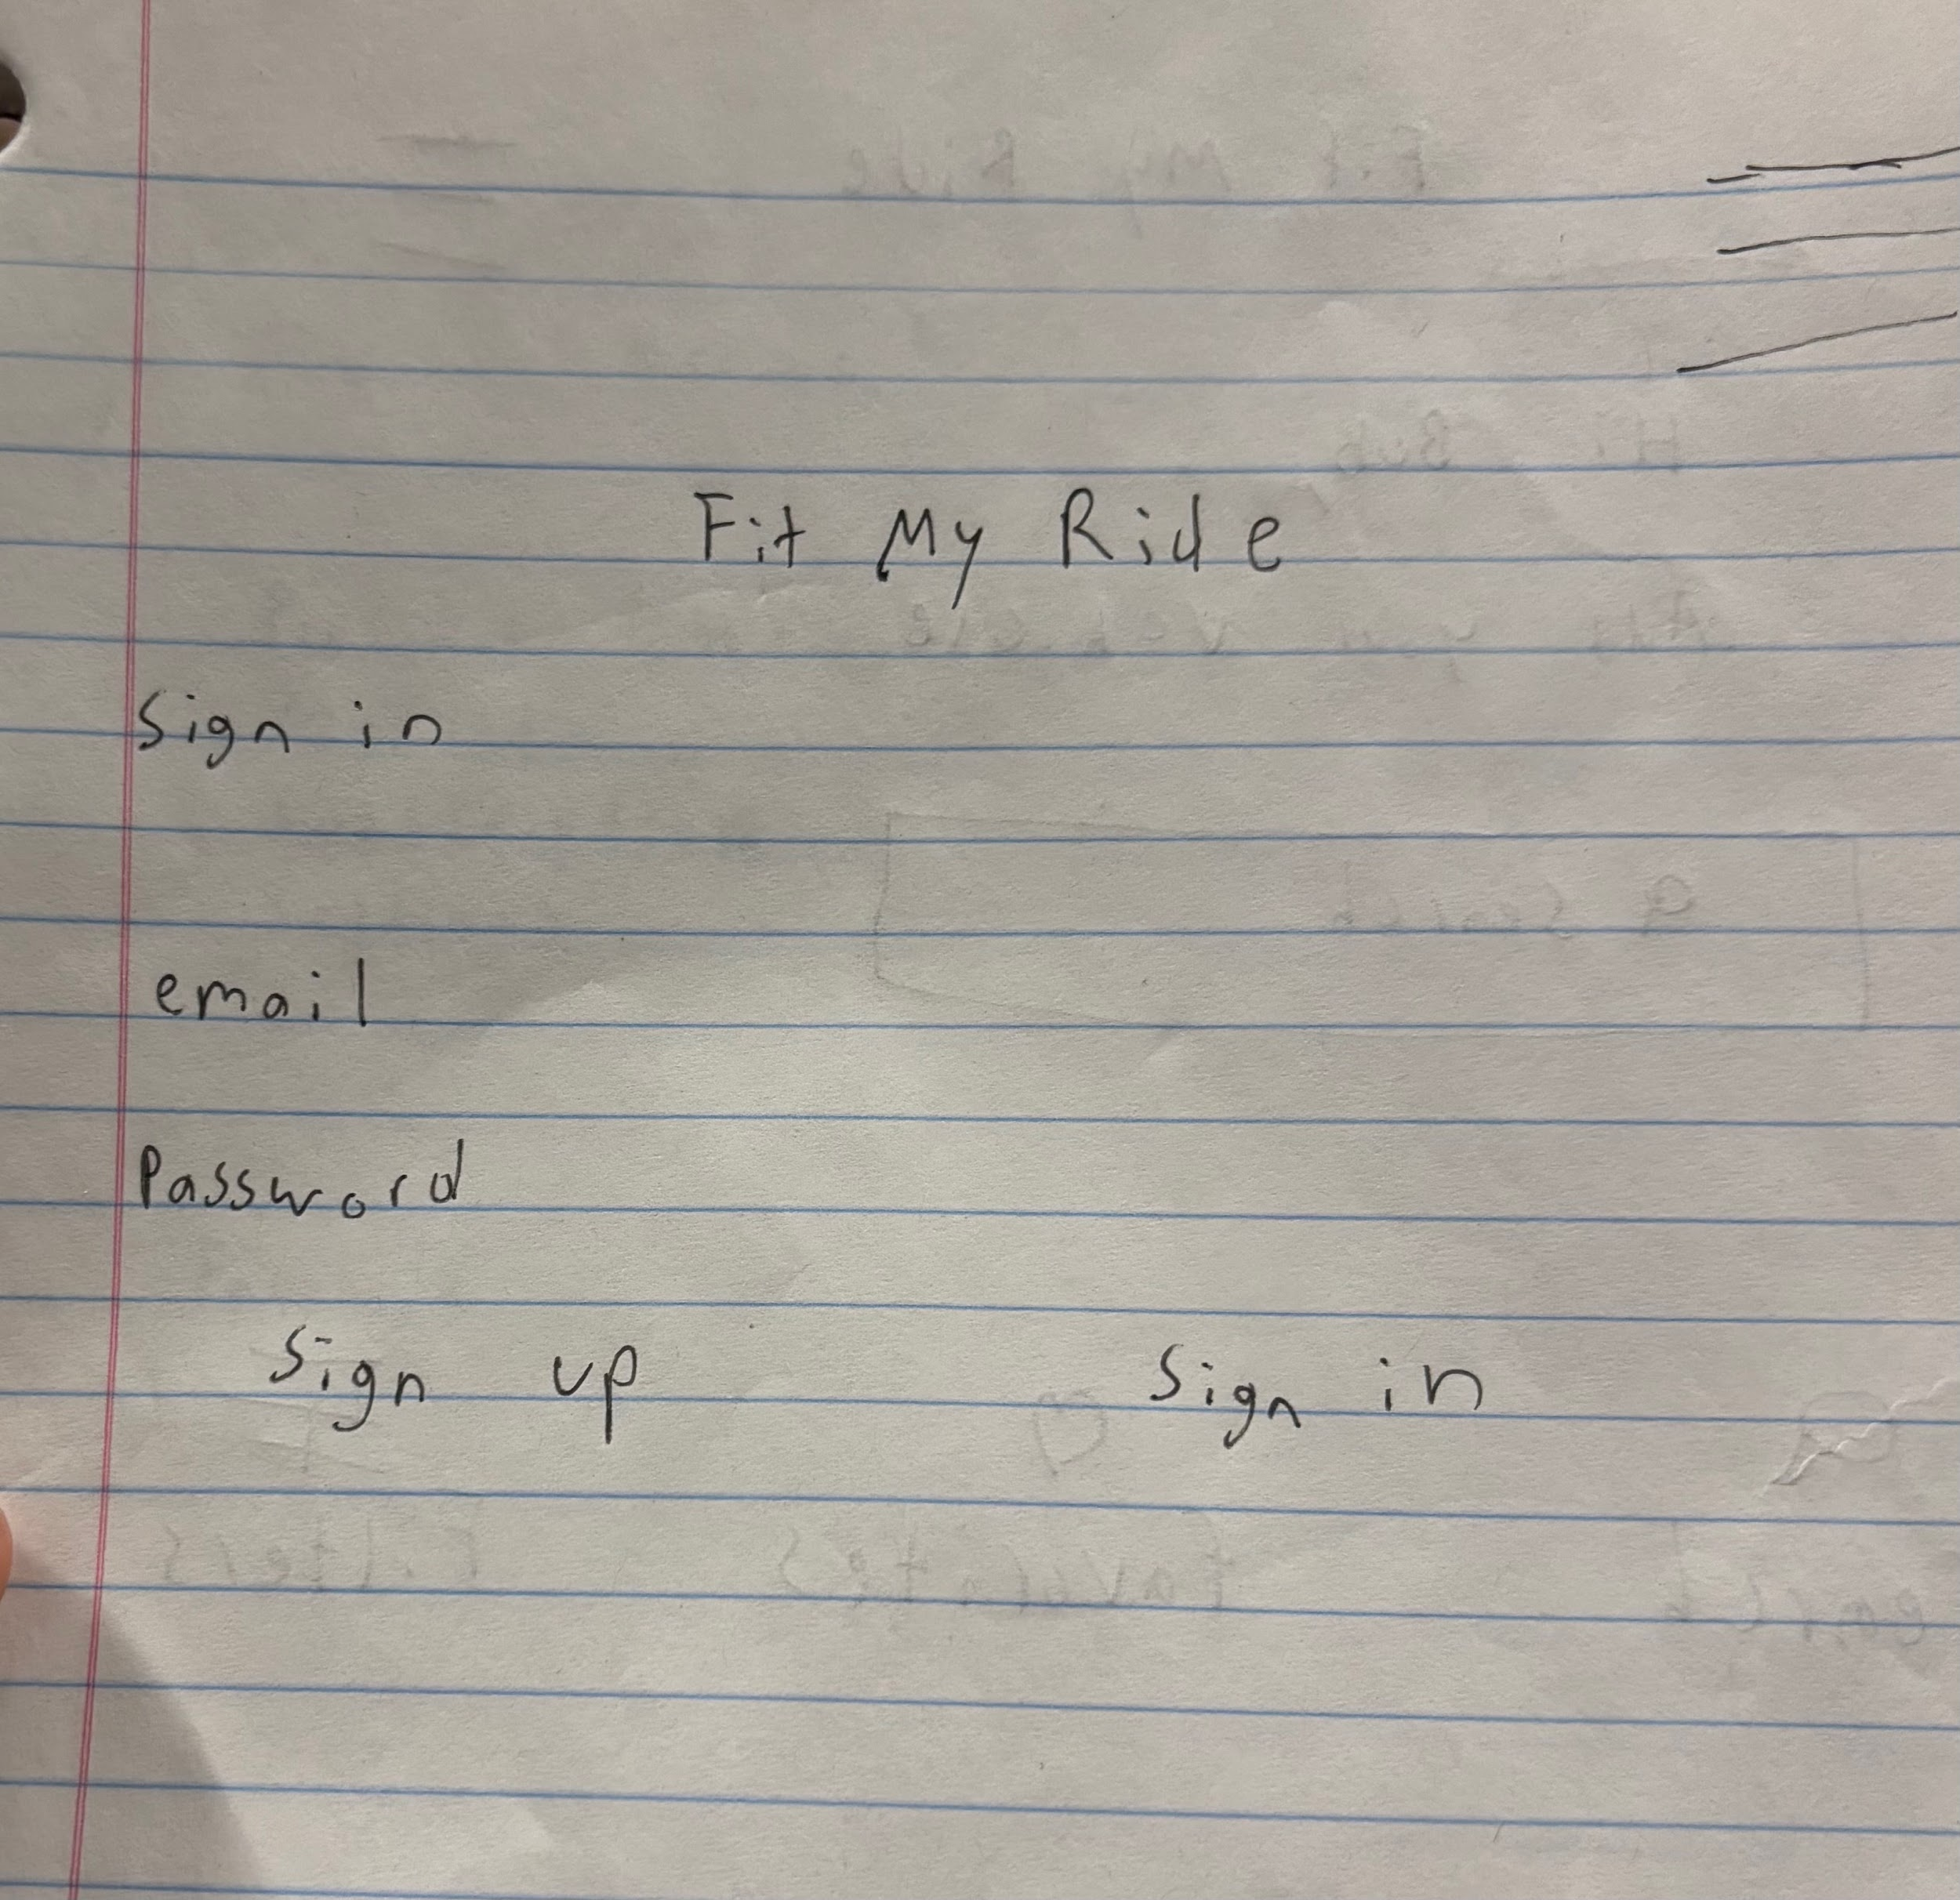 Fit My Ride
Sign in
email
Password
Sign up Sign in